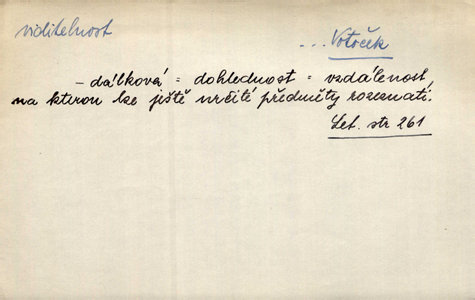 viditelnost
... Votoček
- dálková = dohlednost = vzdálenost,
na kterou lze ještě určité předměty rozeznati.
Let. str 261